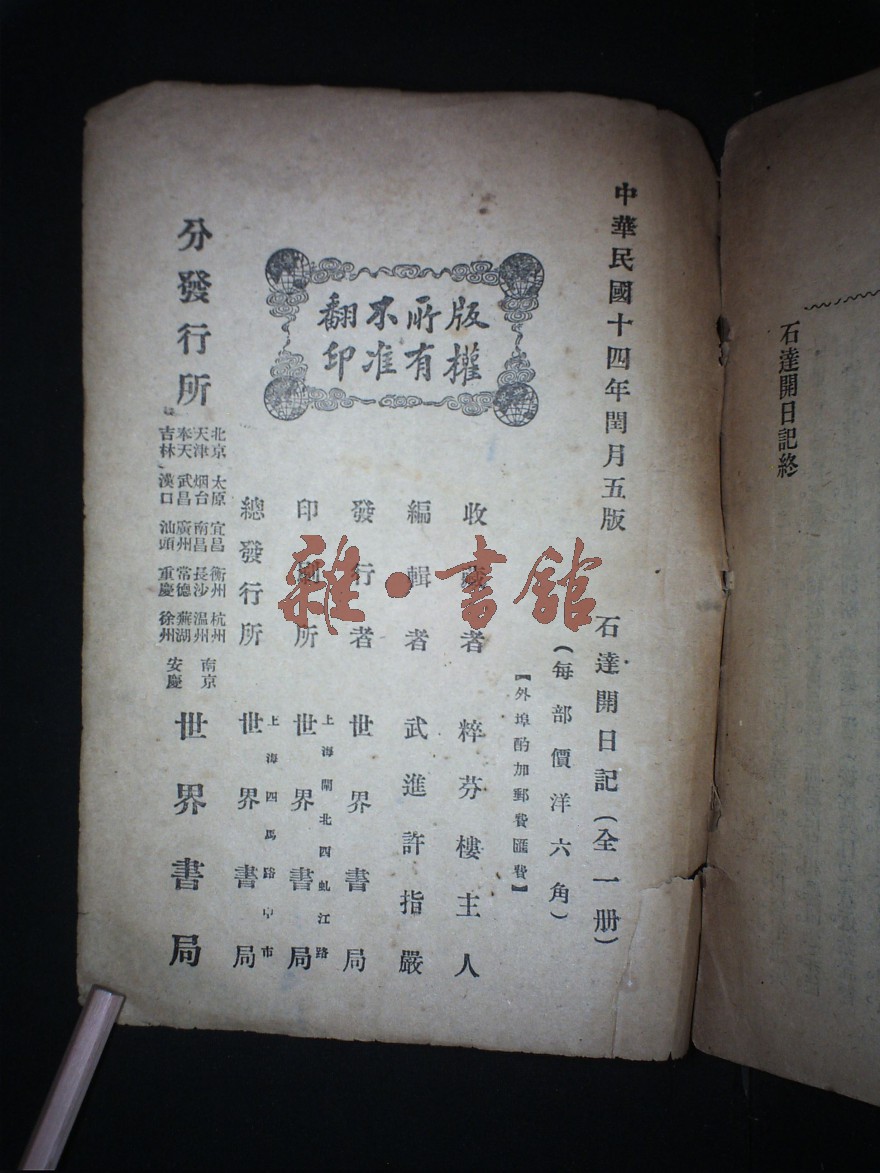 石達開日記終
中華民國十四年閏月五版
石達開日記(全一册)
(每部價洋六角)
【外埠酌加郵費匯費】
版權
所有
不准
翻印
收藏者 粹芬樓主人
編輯者 武進許指嚴
發行者 世界書局
上海閘北四虬江路
印刷所 世界書局
上海四馬路中市
總發行所 世界書局
分發行所
北京 太原 宜昌 衡州 杭州 南京
天津 烟台 南昌 長沙 温州
奉天 武昌 廣州 常德 蕪湖 安慶
吉林 漢口 汕頭 重慶 徐州
世界書局
雜·書館